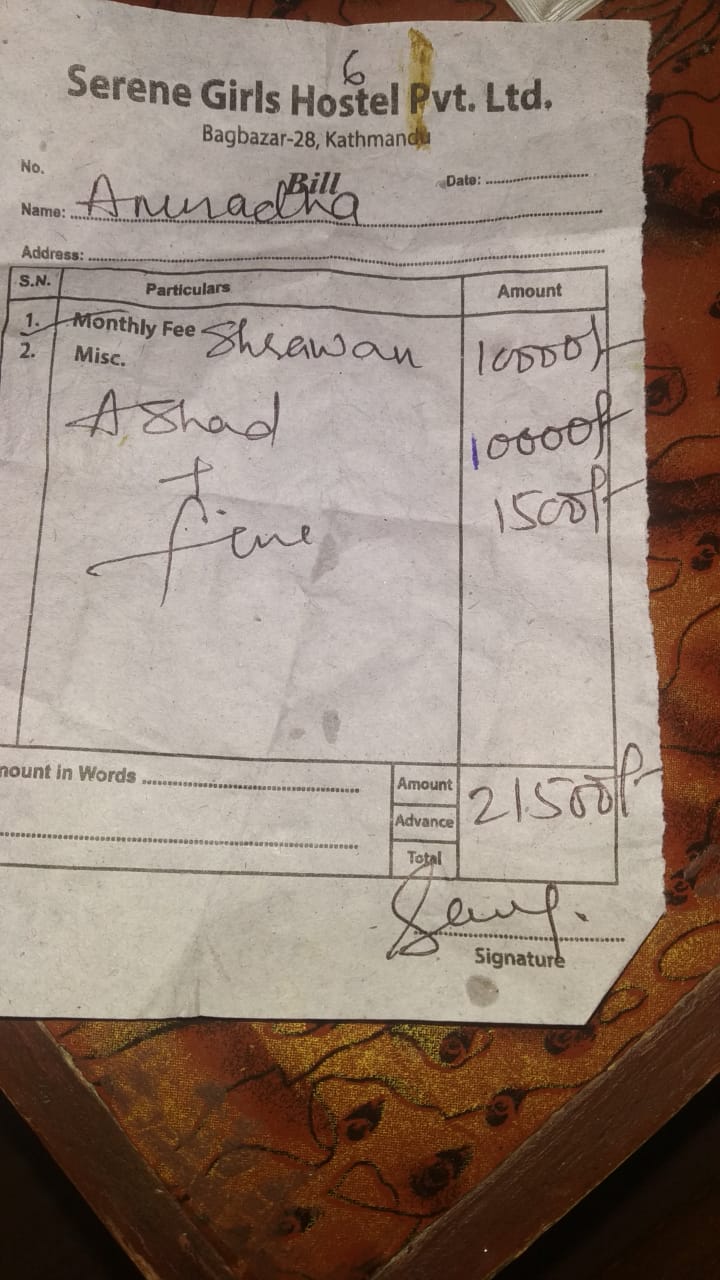 6
Serene Girls Hostel Pvt. Ltd.
Bagbazar-28, Kathmandu
No.
Bill
Date:
Name: Anuradha
Address:
S.N. Particulars Amount
1. Monthly Fee Shrawan 10000/-
2. Misc.
AShad 10000/-
+
fine 1500/-
mount in Words
Amount 21500/-
Advance
Total
Signature